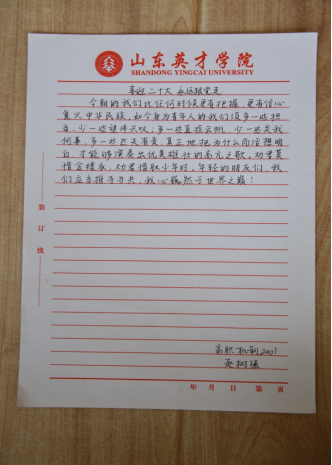 山东英才学院
SHANDONG YINGCAI UNIVERSITY
喜迎二十大 永远跟党走
今朝的我们比任何时候更有把握、更有信心
复兴中华民族，如今身为青年人的我们须多一些担
当，少一些望洋兴叹，多一些直挂云帆，少一些关我
何事，多一些匹夫有责，真正地把为什么而活想明
白，才能够演奏出优美雄壮的高亢之歌，劝君莫
惜金缕衣，劝君惜取少年时，年轻的朋友们，我
们应当携手与共，我心飘然于世界之巅！
装订线
高职机制2001
赵树强
年 月 日 第 页